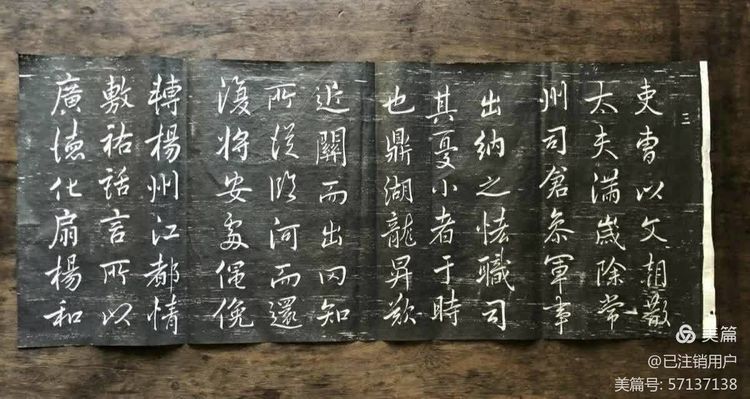 三
吏曹以文朝散
太夫滿歲除常
州司倉叅軍事
出納之恡職司
其憂小者于時
也鼎湖龍昇欻
近關而出罔知
所從臨河而還
復將安處僶俛
轉楊州江都情
敷祐話言所以
廣德化扇楊和
美篇
@已注销用户
美篇号: 57137138